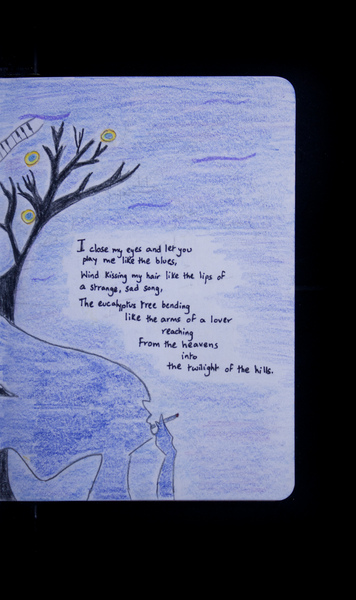 I close my eyes and let you
play me like the blues,
Wind kissing my hair like the lips of
a strange, sad song,
The eucalyptus tree bending
like the arms of a lover
reaching
From the heavens
into
the twilight of the hills.